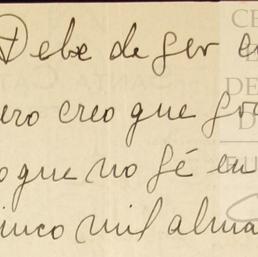 Debe de ser en
ero creo que gra
o que no sé en
inco mil alma